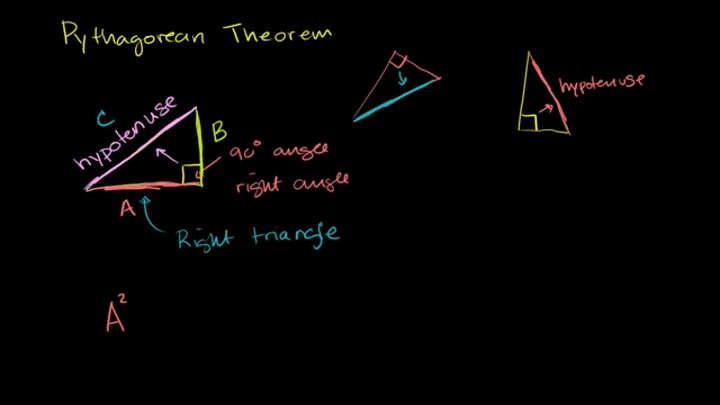 Pythagorean Theorem
C
hypotenuse
B
90° angle
right angle
A
Right triangle
hypotenuse
A²